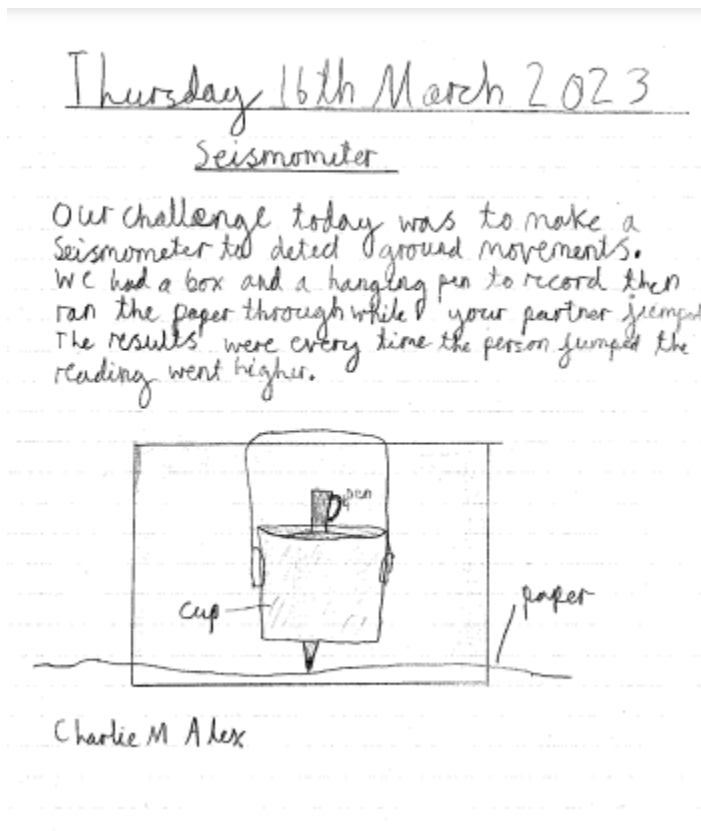 Thursday 16th March 2023
Seismometer
Our challenge today was to make a
Seismometer to detect ground movements.
We had a box and a hanging pen to record then
ran the paper through while your partner jumped
The results were every time the person jumped the
reading went higher.
pen
cup
paper
Charlie M Alex